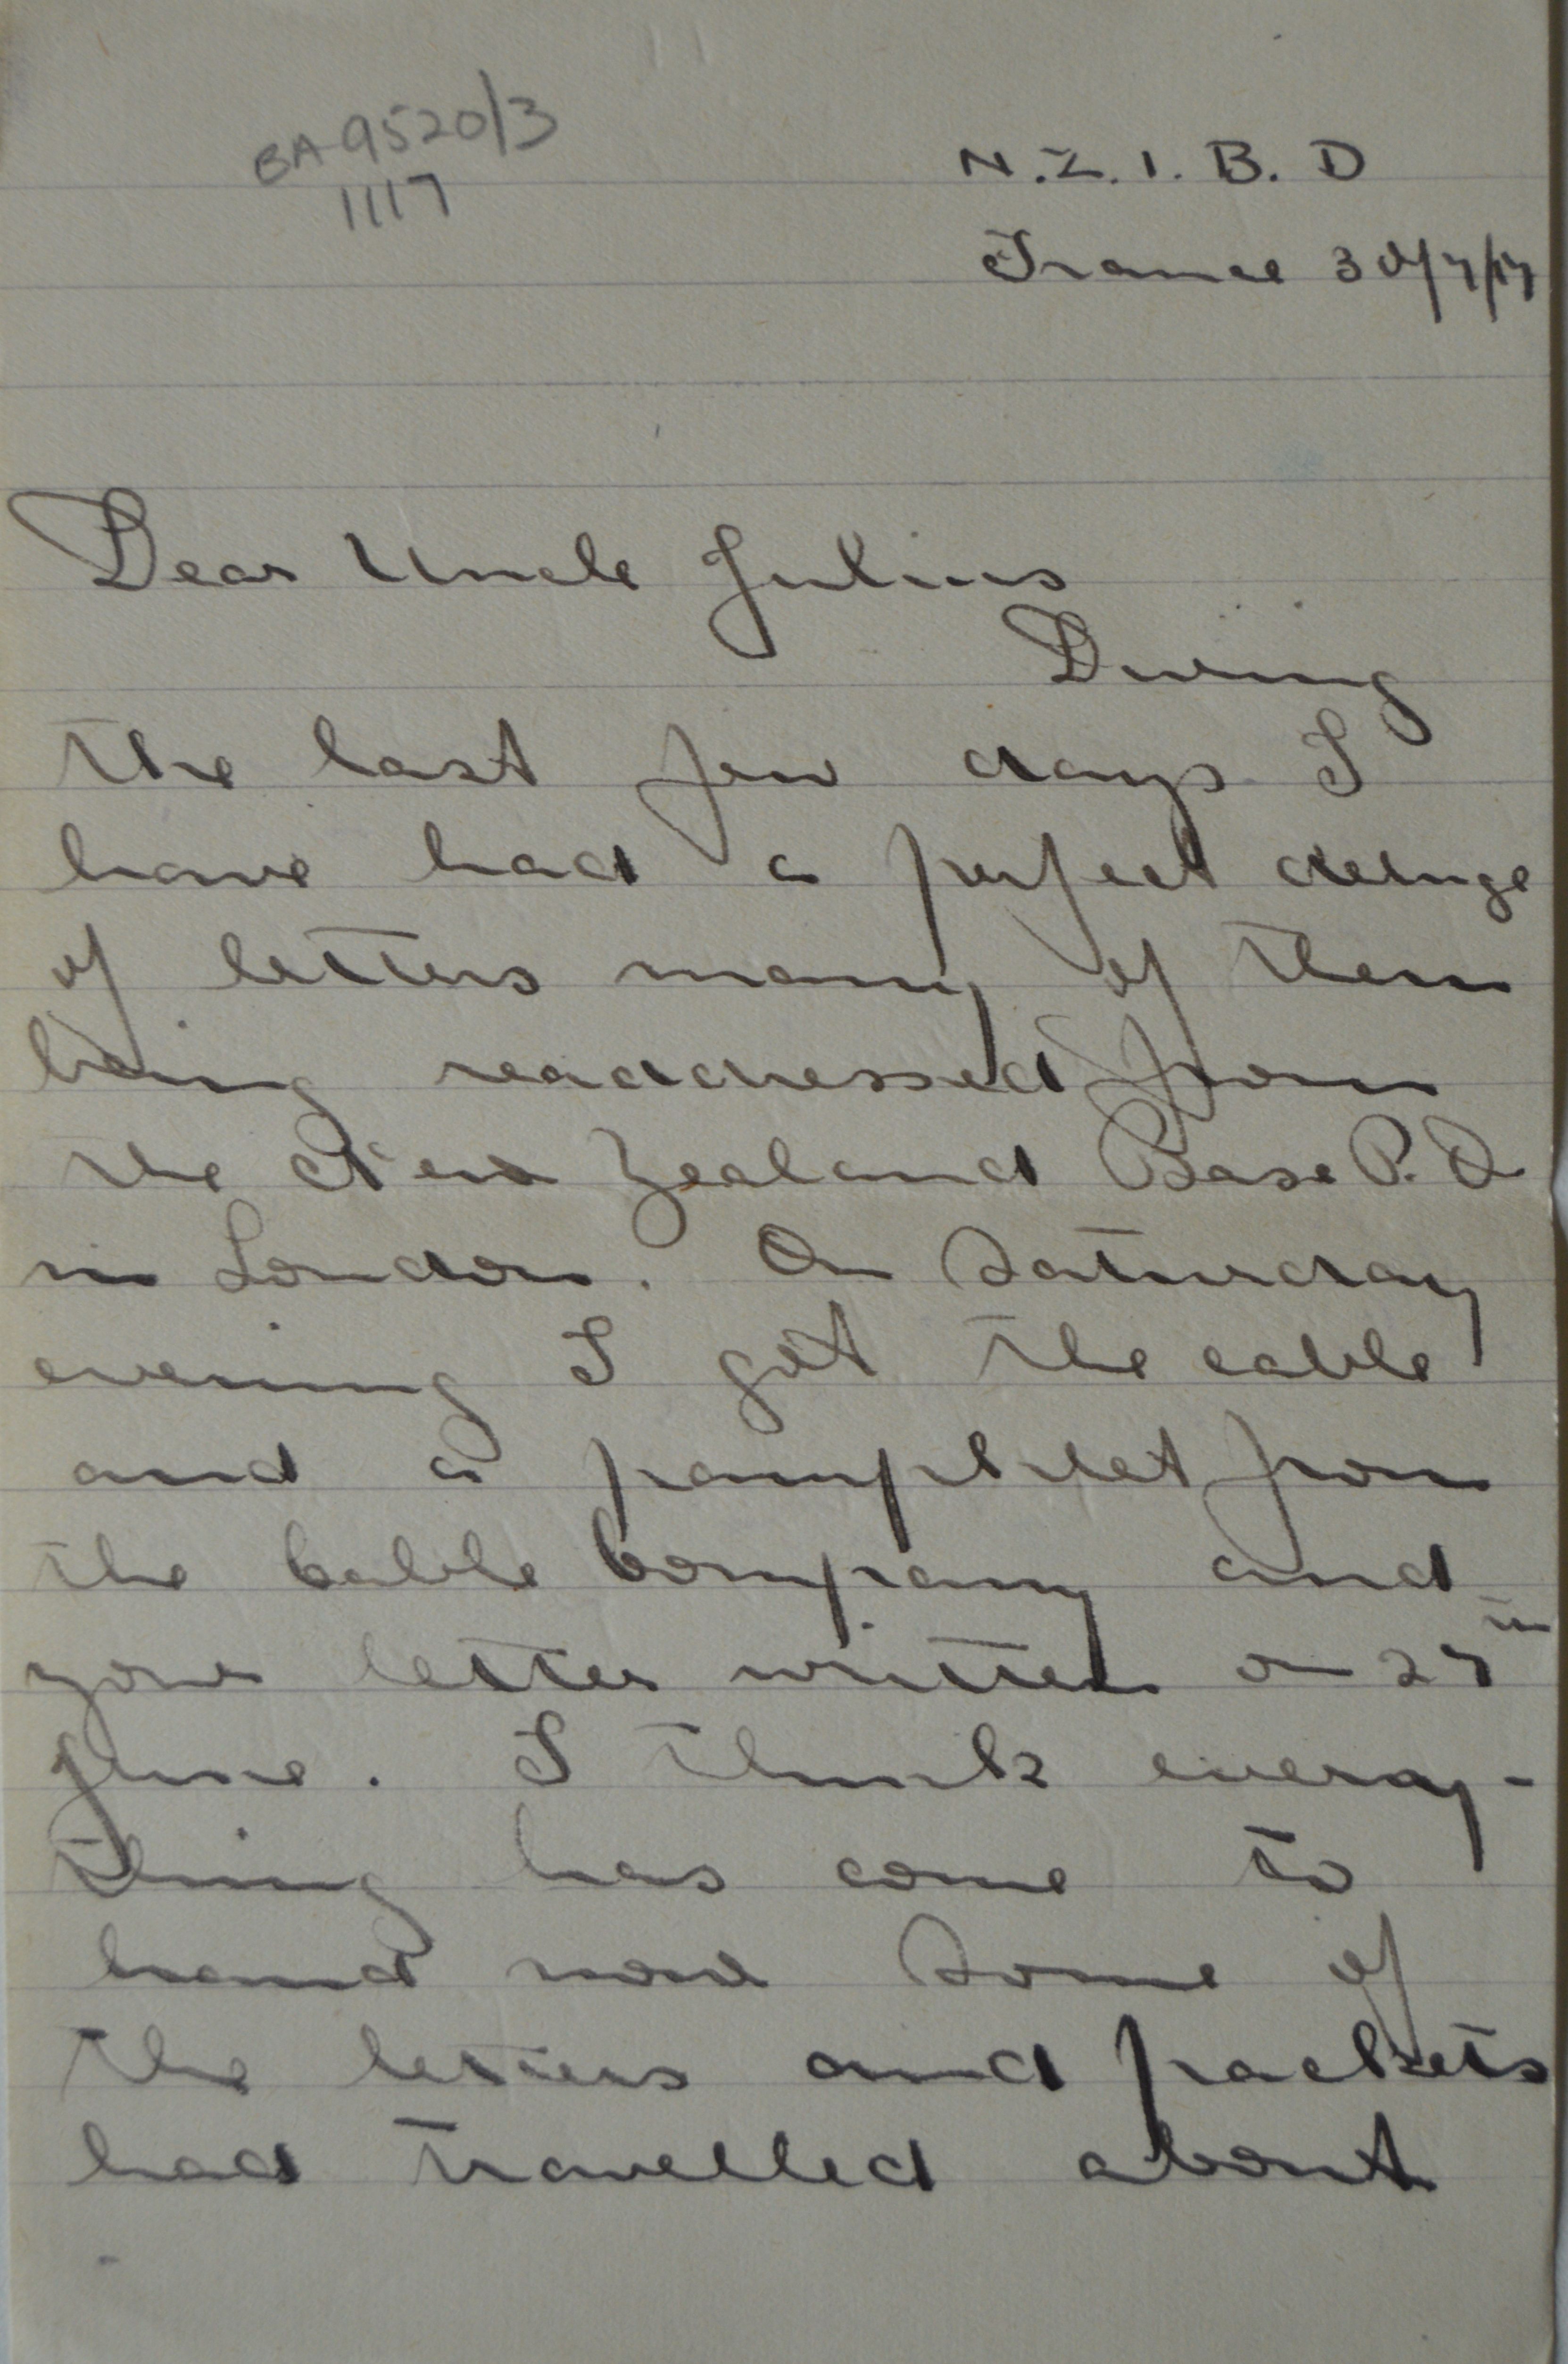 BA 9520/3
1117
N.Z.I.B.D
France 30/7/17
Dear Uncle Julius
During
the last few days I
have had a perfect deluge
of letters many of them
being readdressed from
the New Zealand Base P.O
in London. On Saturday
evening I got the cable
and a pamphlet from
the Cable Company and
your letter written on 27th
June. I think every-
thing has come to
hand now some of
the letters and packets
had travelled about